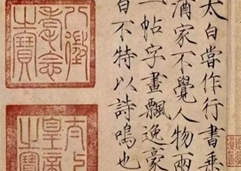 太白嘗作行書乘
酒家不覺人物兩
一帖字畫飄逸豪
白不特以詩鳴也
八徵耄念之寶
太上皇帝之寶